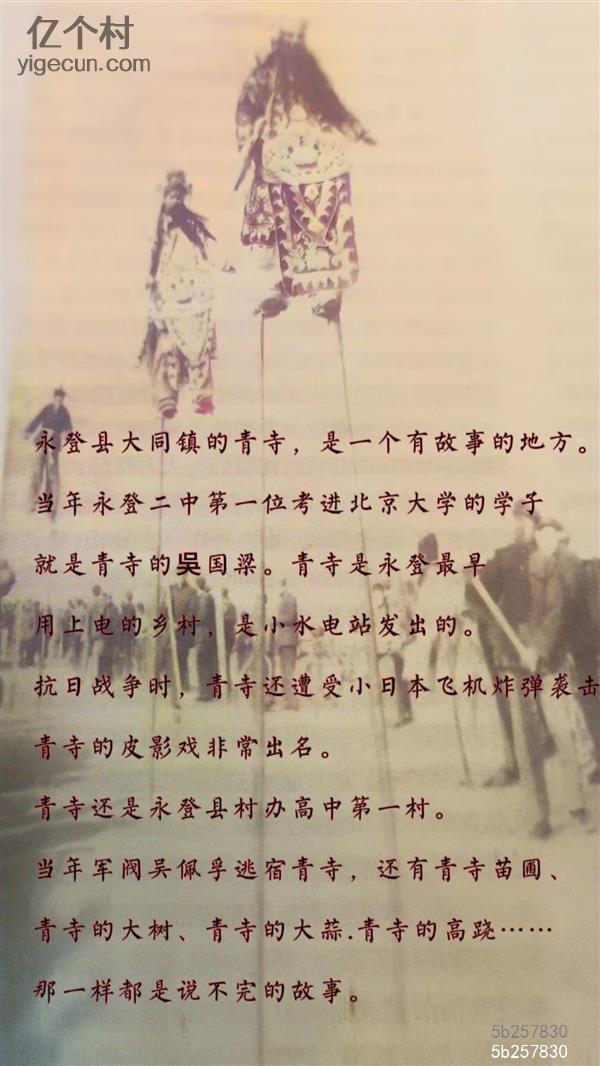 亿个村
yigecun.com
永登县大同镇的青寺，是一个有故事的地方。
当年永登二中第一位考进北京大学的学子
就是青寺的吳国梁。青寺是永登最早
用上电的乡村，是小水电站发出的。
抗日战争时，青寺还遭受小日本飞机炸弹袭击
青寺的皮影戏非常出名。
青寺还是永登县村办高中第一村。
当年军阀吴佩孚逃宿青寺，还有青寺苗圃、
青寺的大树、青寺的大蒜.青寺的高跷……
那一样都是说不完的故事。
5b257830
5b257830